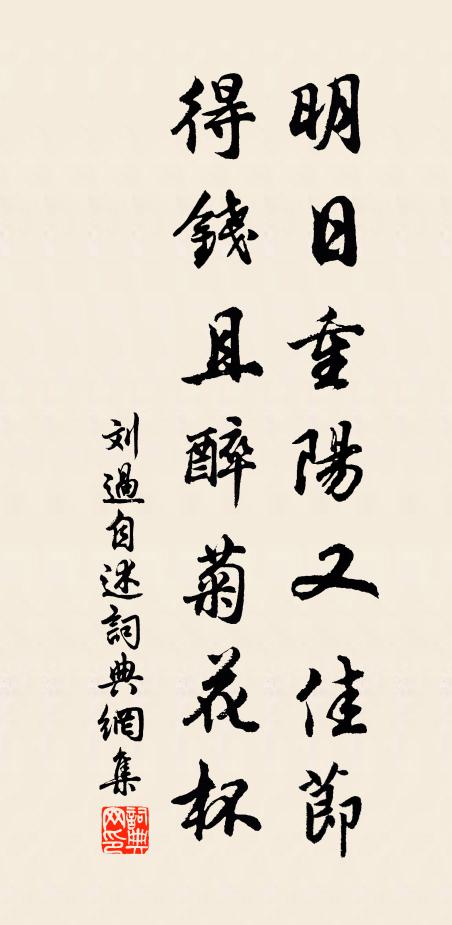 明日重陽又佳節
得錢且醉菊花杯
刘過自述詞典網集
詞典網印